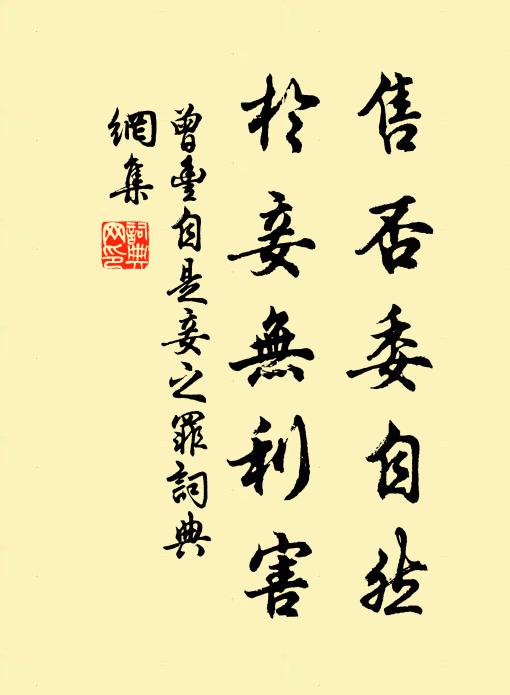 售否委自然
於妾無利害
曾豐自是妾之罪詞典
網集
詞典網印